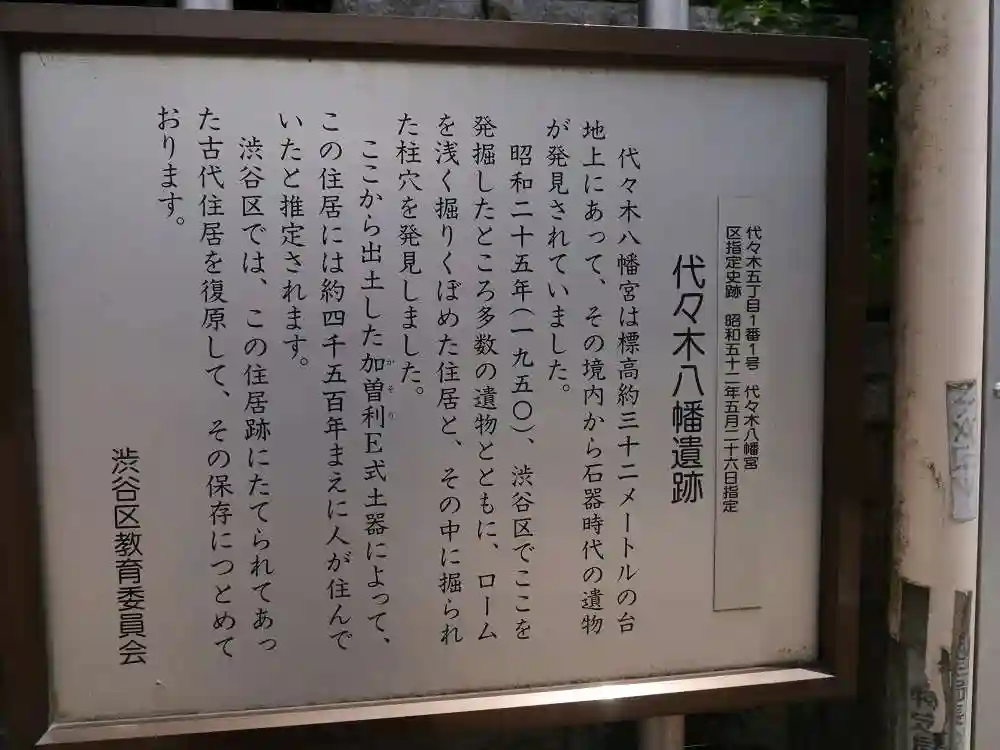 代々木五丁目1番1号 代々木八幡宮
区指定史跡 昭和五十二年五月二十六日指定
代々木八幡遺跡
代々木八幡宮は標高約三十二メートルの台
地上にあって、その境内から石器時代の遺物
が発見されていました。
昭和二十五年(一九五〇)、渋谷区でここを
発掘したところ多数の遺物とともに、ローム
を浅く掘りくぼめた住居と、その中に掘られ
た柱穴を発見しました。
ここから出土した加曽利E式土器によって、
かそり
この住居には約四千五百年まえに人が住んで
いたと推定されます。
渋谷区では、この住居跡にたてられてあっ
た古代住居を復原して、その保存につとめて
おります。
渋谷区教育委員会